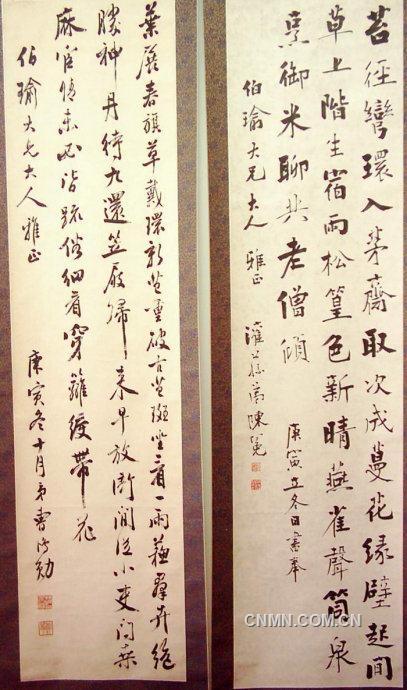 苔徑彎環入茅齋取次成蔓花緣壁起閒
草上階生宿雨松篁色新晴燕雀聲筒泉
烹御米聊共老僧傾 庚寅立冬日書奉
伯瑜大兄大人雅正 陳冕
葉展春旗草戴環新苔重破古苔斑坐看一雨蘇群卉絕
勝神丹待九還笠屐歸來早放衙閒從小吏問桑
麻官情未必皆疏俗細看穿籬綬帶花
伯瑜大兄大人雅正 庚寅冬十月弟曹鴻勛
CNMN.COM.CN